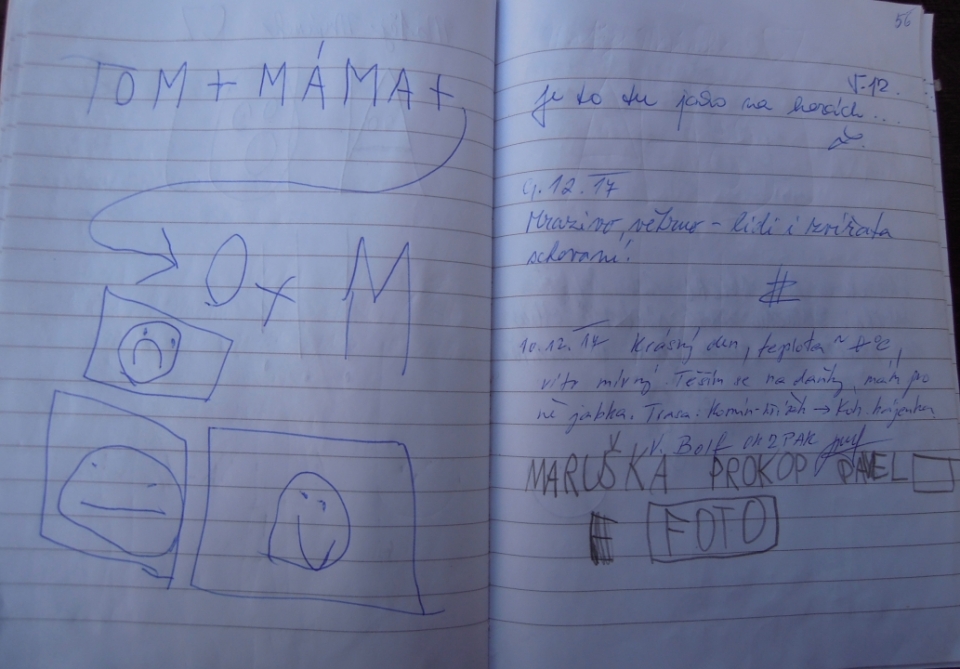 TOM + MÁMA +
O x M
56
5.12.
Je to tu jako na horách...
9.12.17
Mrazivo, větrno - lidi i zvířata
schovaní!
#
10.12.17 Krásný den, teplota ~ °C,
vítr mírný. Těším se na daňky, mám pro
ně jabka. Trasa: Komín-
V. PAK
MARUŠKA PROKOP PAVEL
FOTO